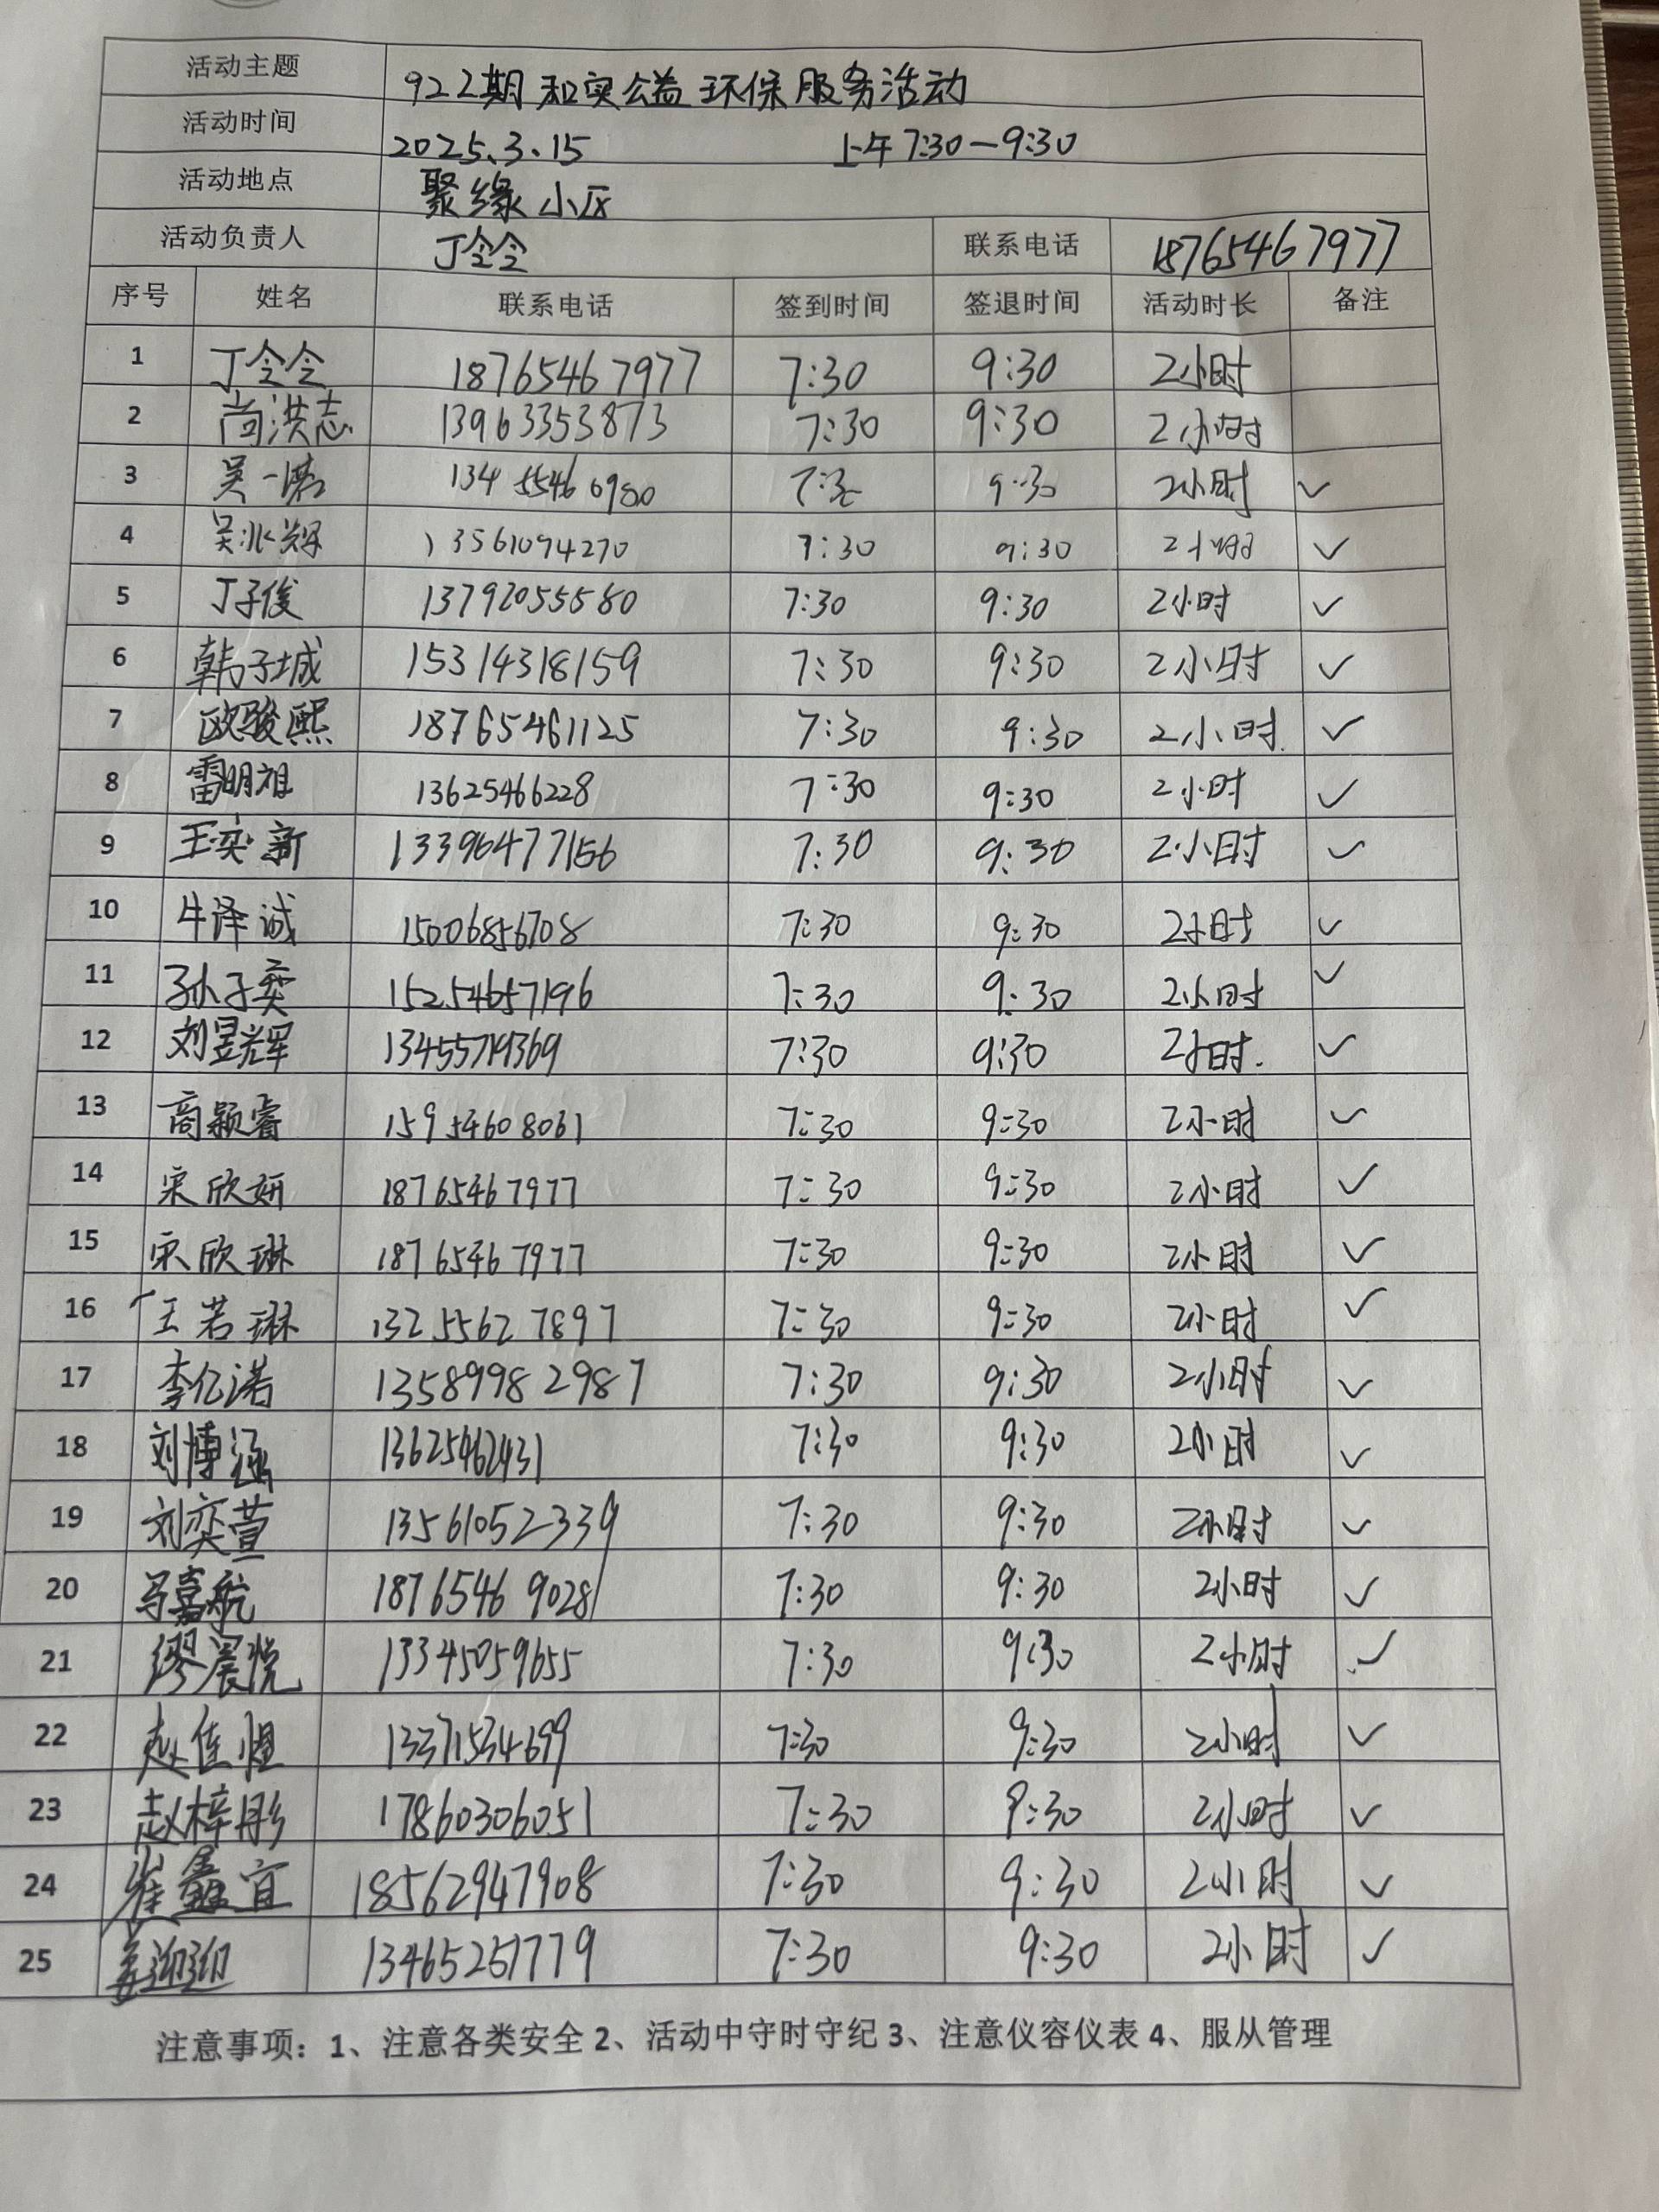 活动主题 922期和实公益环保服务活动
活动时间 2025.3.15 上午7:30—9:30
活动地点 聚缘小区
活动负责人 丁令令 联系电话 18765467977
序号 姓名 联系电话 签到时间 签退时间 活动时长 备注
1 丁令令 18765467977 7:30 9:30 2小时
2 尚洪志 13963353873 7:30 9:30 2小时
3 吴一诺 13455460980 7:30 9:30 2小时 ✓
4 吴兆辉 13561094270 7:30 9:30 2小时 ✓
5 丁子俊 13792055580 7:30 9:30 2小时 ✓
6 韩子城 15314318159 7:30 9:30 2小时 ✓
7 欧骏熙 18765461125 7:30 9:30 2小时 ✓
8 雷明祖 13625466228 7:30 9:30 2小时 ✓
9 王奕新 13396477156 7:30 9:30 2小时 ✓
10 牛泽诚 15006856708 7:30 9:30 2小时 ✓
11 孙子奕 15254657196 7:30 9:30 2小时 ✓
12 刘昱辉 13455719369 7:30 9:30 2小时 ✓
13 商颖睿 15954608061 7:30 9:30 2小时 ✓
14 宋欣妍 18765467977 7:30 9:30 2小时 ✓
15 宋欣琳 18765467977 7:30 9:30 2小时 ✓
16 王若琳 13255627897 7:30 9:30 2小时 ✓
17 李亿诺 13589982987 7:30 9:30 2小时 ✓
18 刘博涵 13625462431 7:30 9:30 2小时 ✓
19 刘奕萱 13561052339 7:30 9:30 2小时 ✓
20 马嘉航 18765469028 7:30 9:30 2小时 ✓
21 缪晨悦 13345059655 7:30 9:30 2小时 ✓
22 赵佳恒 13371534699 7:30 9:30 2小时 ✓
23 赵梓彤 17860306051 7:30 9:30 2小时 ✓
24 崔鑫宜 18562947908 7:30 9:30 2小时 ✓
25 姜迎迎 13465251779 7:30 9:30 2小时 ✓
注意事项：1、注意各类安全 2、活动中守时守纪 3、注意仪容仪表 4、服从管理